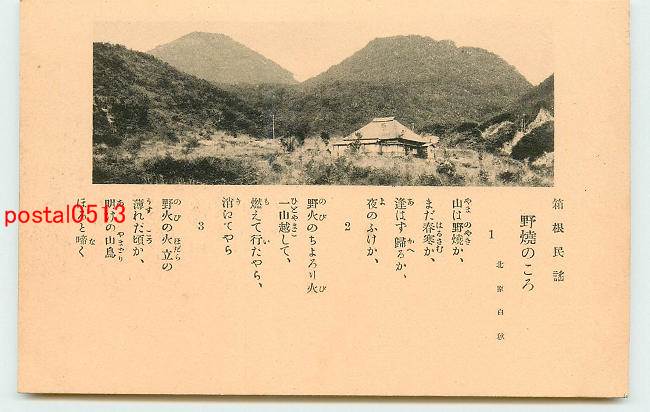 箱根民謡
野燒のころ
北原白秋
1
山は野燒か、
まだ春寒か、
逢はず歸るか、
夜のふけか、
2
野火のちよろり火
一山越して、
燃えて行たやら、
消にてやら
3
野火の火立の
薄れた頃か、
明けの山鳥
ほろと啼く
postal0513